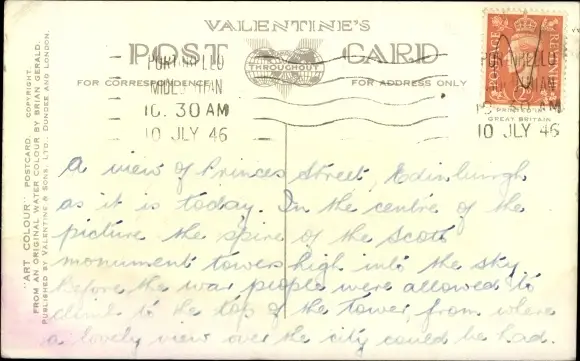 VALENTINE'S
POST CARD
THROUGHOUT
FOR CORRESPONDENCE
FOR ADDRESS ONLY
PORTOBELLO
MIDLOTHIAN
10. 30 AM
10 JLY 46
POSTAGE
PRINTED IN
GREAT BRITAIN
10 JLY 46
"ART COLOUR" POSTCARD. COPYRIGHT.
FROM AN ORIGINAL WATER COLOUR BY BRIAN GERALD.
PUBLISHED BY VALENTINE & SONS, LTD., DUNDEE AND LONDON.
A view of Princes Street, Edinburgh
as it is today. In the centre of the
picture the spire of the Scott
monument towers high into the sky.
Before the war people were allowed to
climb to the top of the tower, from where
a lovely view over the city could be had.